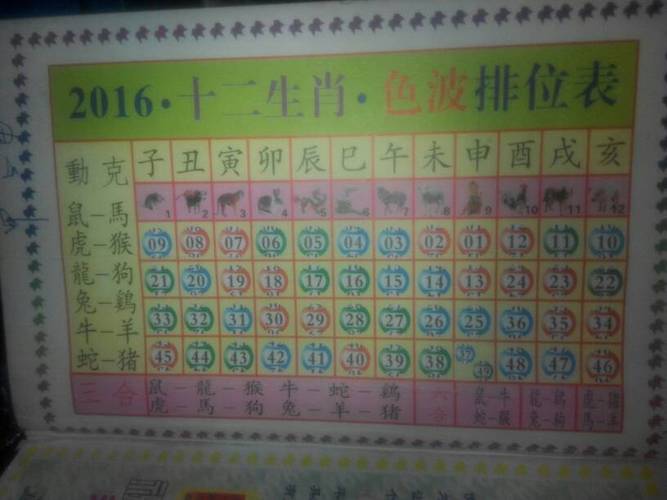 2016·十二生肖·色波排位表
動 克 子 丑 寅 卯 辰 巳 午 未 申 酉 戌 亥
鼠-馬 1 2 3 4 5 6 7 8 9 10 11 12
虎-猴 09 08 07 06 05 04 03 02 01 12 11 10
龍-狗 21 20 19 18 17 16 15 14 13 24 23 22
兔-鷄
牛-羊 33 32 31 30 29 28 27 26 25 36 35 34
蛇-豬 45 44 43 42 41 40 39 38 37 49 48 47 46
三合 鼠-龍-猴 牛-蛇-鷄 六合 鼠-牛 龍-鷄 虎-豬
虎-馬-狗 兔-羊-豬 蛇-猴 兔-狗 馬-羊